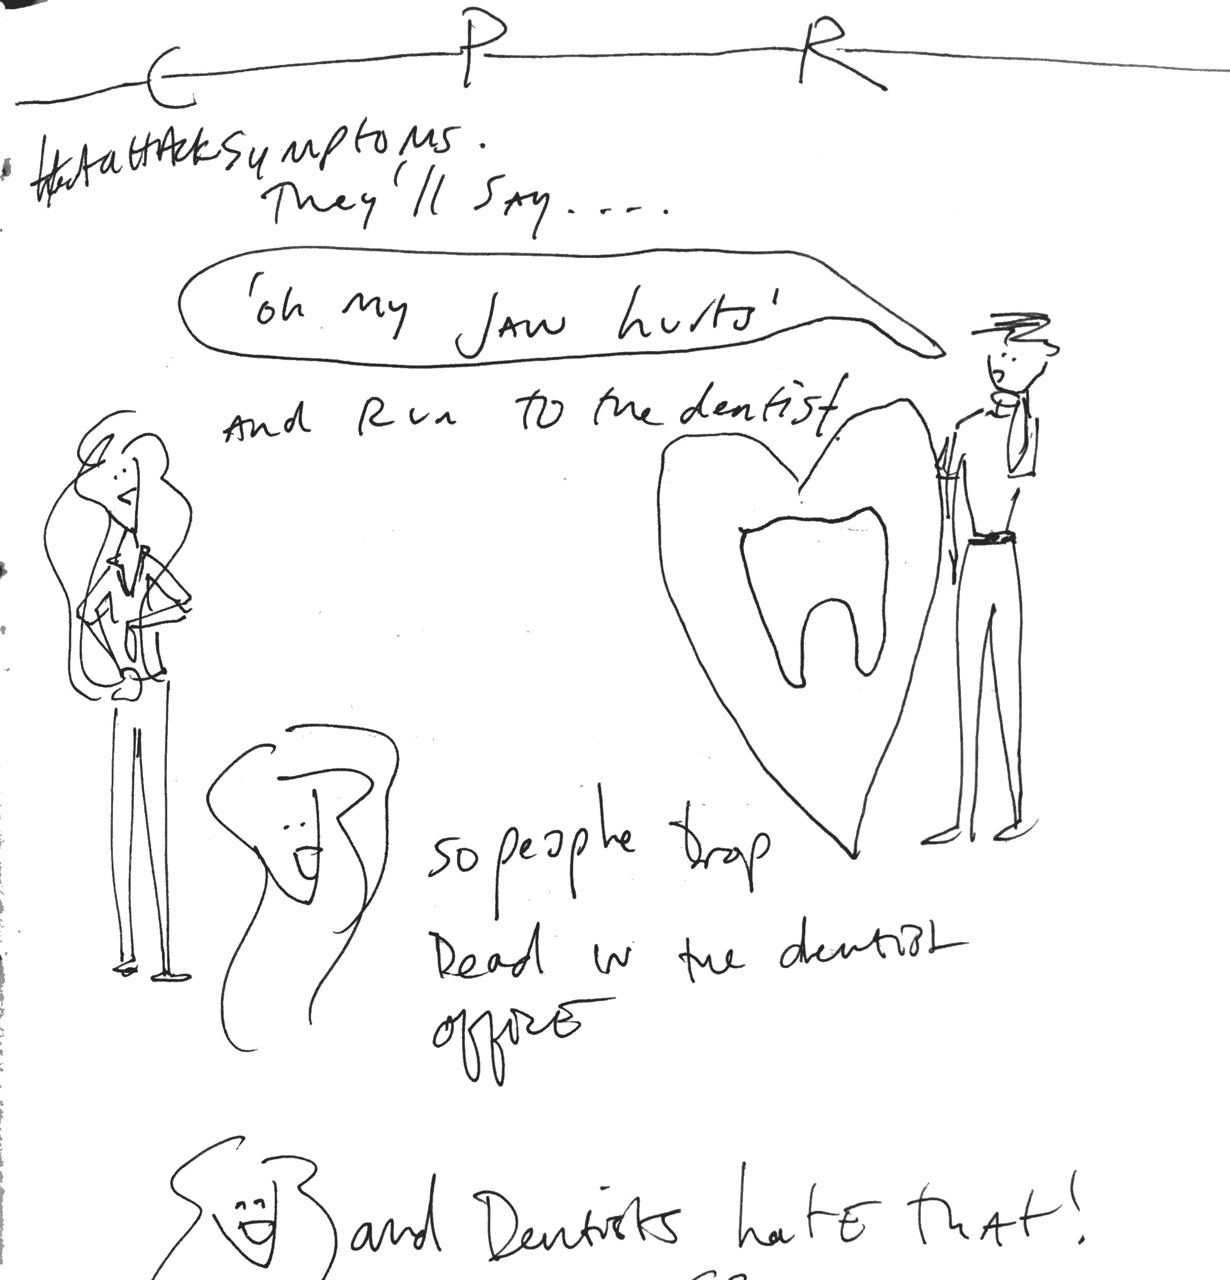 C P R
HeartAttack Symptoms.
They'll SAY.....
'oh my JAW hurts'
And Run to the dentist
so people drop
Dead in the dentist
OFFICE
and Dentists hate that!